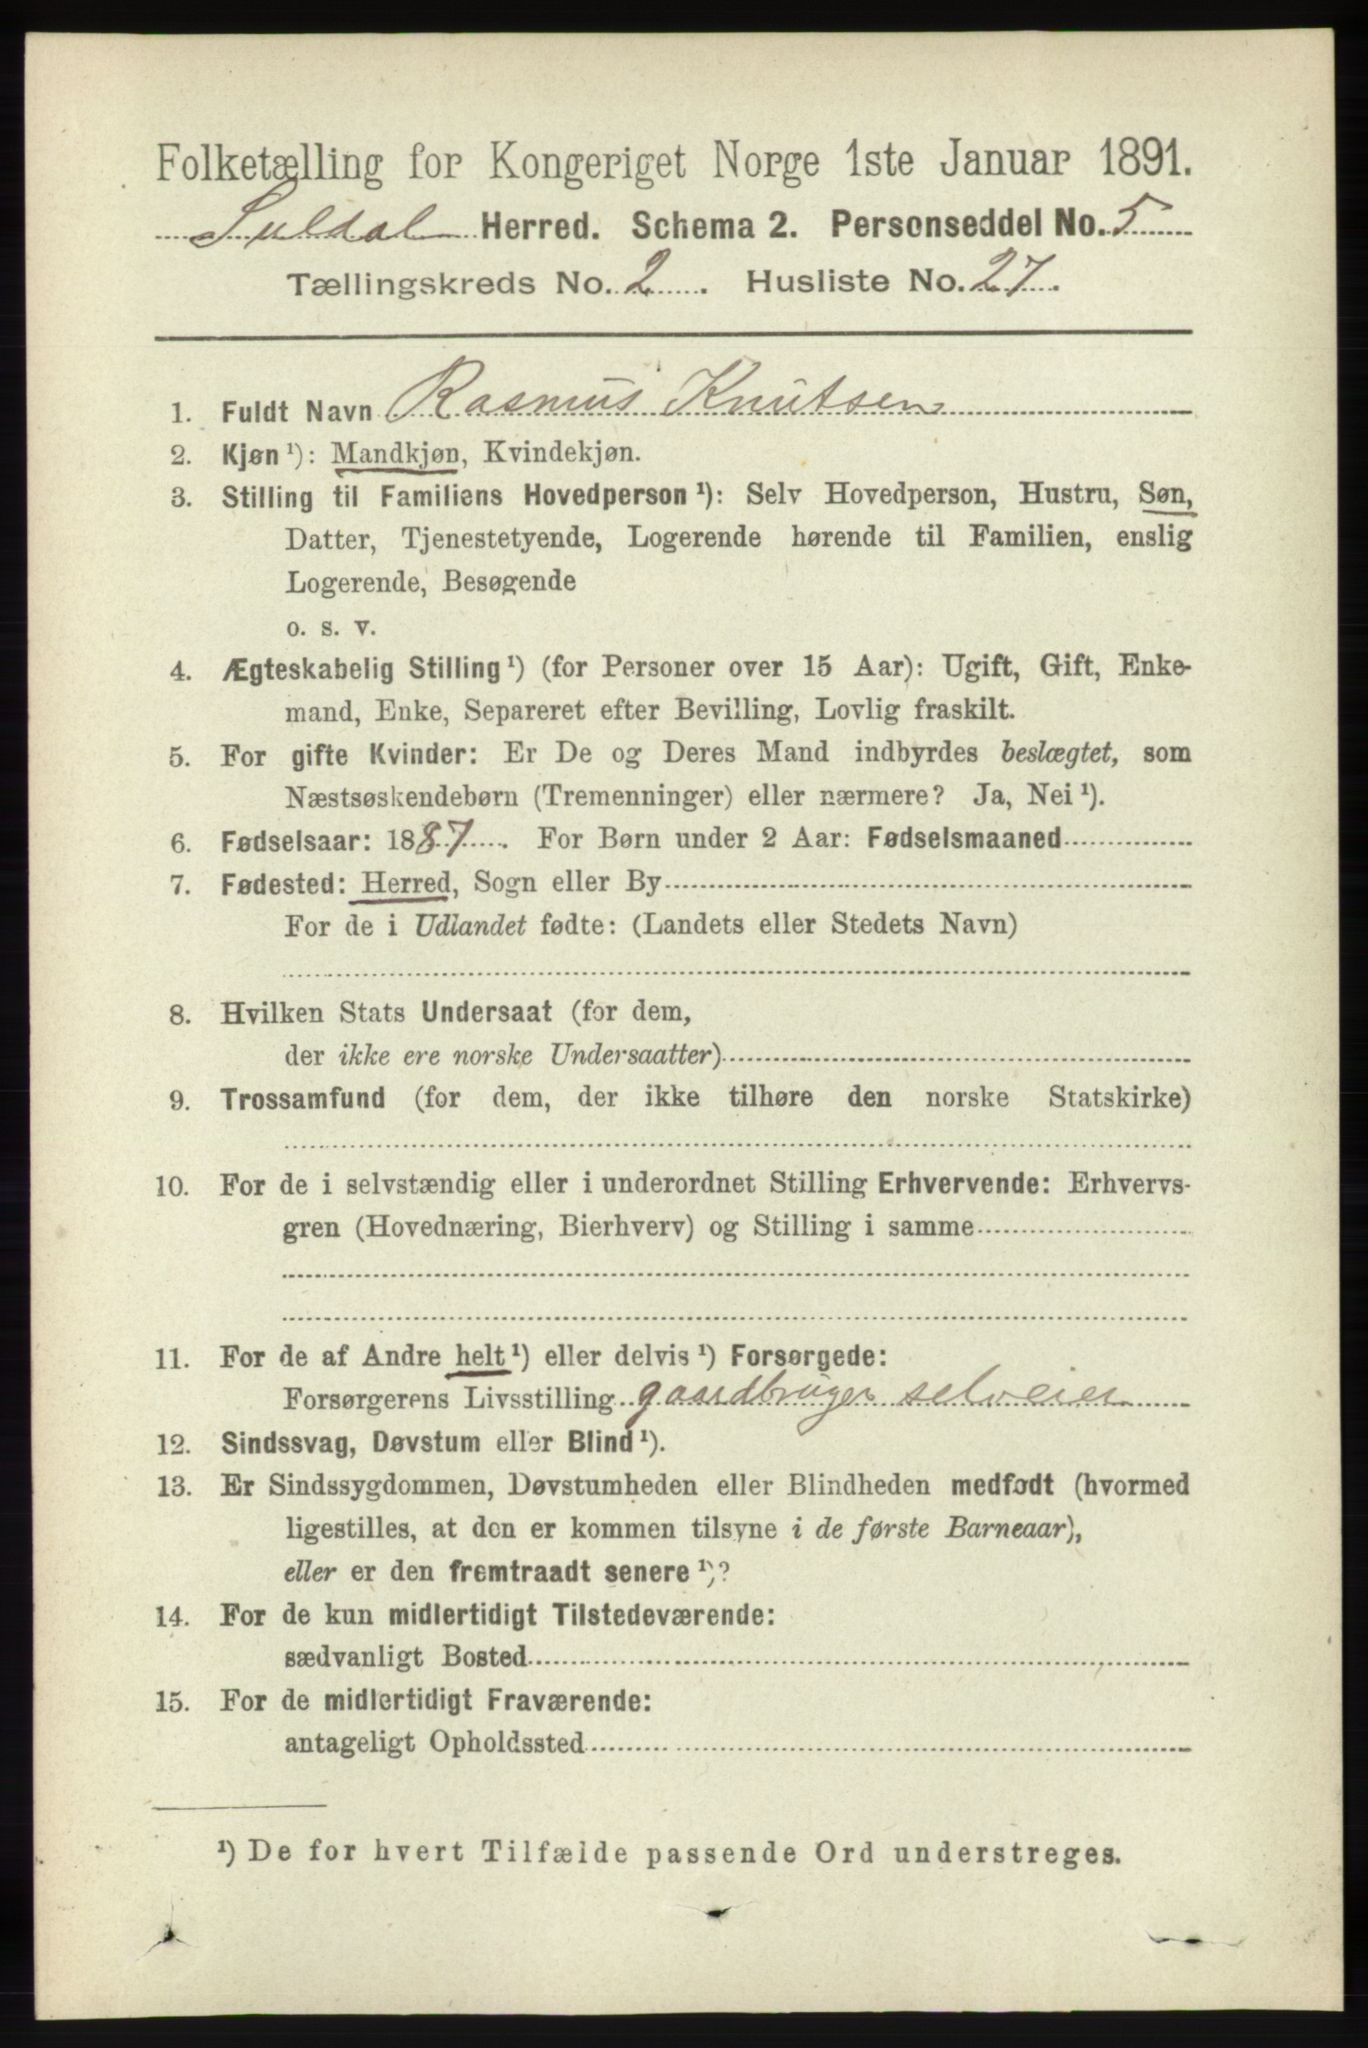 Folketælling for Kongeriget Norge 1ste Januar 1891.
Suldal Herred. Schema 2. Personseddel No. 5
Tællingskreds No. 2. Husliste No. 27.
1. Fuldt Navn Rasmus Knutsen
2. Kjøn ¹): Mandkjøn, Kvindekjøn.
3. Stilling til Familiens Hovedperson ¹): Selv Hovedperson, Hustru, Søn,
Datter, Tjenestetyende, Logerende hørende til Familien, enslig
Logerende, Besøgende
o. s. v.
4. Ægteskabelig Stilling ¹) (for Personer over 15 Aar): Ugift, Gift, Enke-
mand, Enke, Separeret efter Bevilling, Lovlig fraskilt.
5. For gifte Kvinder: Er De og Deres Mand indbyrdes beslægtet, som
Næstsøskendebørn (Tremenninger) eller nærmere? Ja, Nei ¹).
6. Fødselsaar: 1887. For Børn under 2 Aar: Fødselsmaaned
7. Fødested: Herred, Sogn eller By
For de i Udlandet fødte: (Landets eller Stedets Navn)
8. Hvilken Stats Undersaat (for dem,
der ikke ere norske Undersaatter)
9. Trossamfund (for dem, der ikke tilhøre den norske Statskirke)
10. For de i selvstændig eller i underordnet Stilling Erhvervende: Erhvervs-
gren (Hovednæring, Bierhverv) og Stilling i samme
11. For de af Andre helt ¹) eller delvis ¹) Forsørgede:
Forsørgerens Livsstilling gaardbruger selveier
12. Sindssvag, Døvstum eller Blind ¹).
13. Er Sindssygdommen, Døvstumheden eller Blindheden medfødt (hvormed
ligestilles, at den er kommen tilsyne i de første Barneaar),
eller er den fremtraadt senere ¹)?
14. For de kun midlertidigt Tilstedeværende:
sædvanligt Bosted
15. For de midlertidigt Fraværende:
antageligt Opholdssted
¹) De for hvert Tilfælde passende Ord understreges.